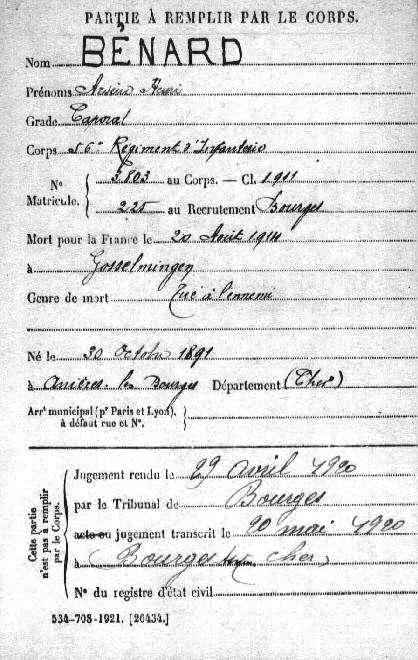 PARTIE À REMPLIR PAR LE CORPS.
Nom BÉNARD
Prénoms Henri
Grade Caporal
Corps Régiment d'Infanterie
Nº Matricule. 5803 au Corps. — Cl. 1911
225 au Recrutement Bourges
Mort pour la France le 20 Août 1914
à Gosselmingen
Genre de mort Tué à l'ennemi
Né le 30 Octobre 1891
à Asnières les Bourges Département (Cher)
Arrᵗ municipal (pʳ Paris et Lyon),
à défaut rue et Nº.
Cette partie
n'est pas à remplir
par le Corps.
Jugement rendu le 29 avril 1920
par le Tribunal de Bourges
acte ou jugement transcrit le 20 mai 1920
à Bourges Cher
Nº du registre d'état civil
534-708-1921. [26434.]